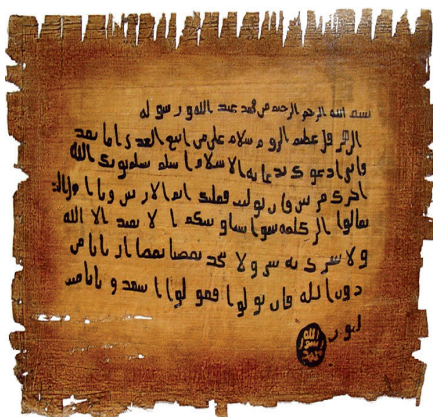 بسم الله الرحمن الرحيم من محمد عبد الله و رسوله
الى هرقل عظيم الروم سلام على من اتبع الهدى اما بعد
فانى ادعوك بدعاية الاسلام اسلم تسلم يوتك الله
اجرك مرتين فان توليت فعليك اثم الاريسين ويا اهل
تعالوا الى كلمة سوا بيننا وبينكم ا لا نعبد الا الله
ولا نشرك به شى ولا يتخذ بعضنا بعضا اربابا من
دون الله فان تولوا فقولوا اشهدوا بانا مس
لمون
الله
رسول
محمد